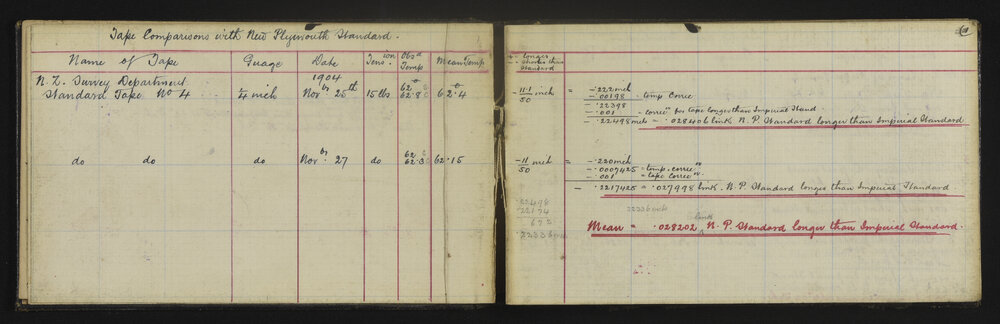 Tape Comparisons with New Plymouth Standard.
Name of Tape Guage Date Tension Obsd Temp Mean Temp
N. Z. Survey Department
Standard Tape No 4 1/4 inch 1904 Novbr 25th 15 lbs 62.0 62.8 62.4
do do do Novbr 27 do 62. 62.3 62.15
+ longer
- shorter than
Standard
-11.1/50 inch = - .222 inch
- .00198 - temp Correc
- .22398
- .001 - correcn for tape longer than Imperial Stand
- .22498 inch = .028406 link N. P. Standard longer than Imperial Standard
-11/50 inch = - .220 inch
- .0007425 - temp. correcn
- .001 - tape correcn
- .2217425 = .027998 link. N. P. Standard longer than Imperial Standard.
.22498
.22174
672
.22336 inch
.22336 inch
Mean = .028202 link N. P. Standard longer than Imperial Standard.